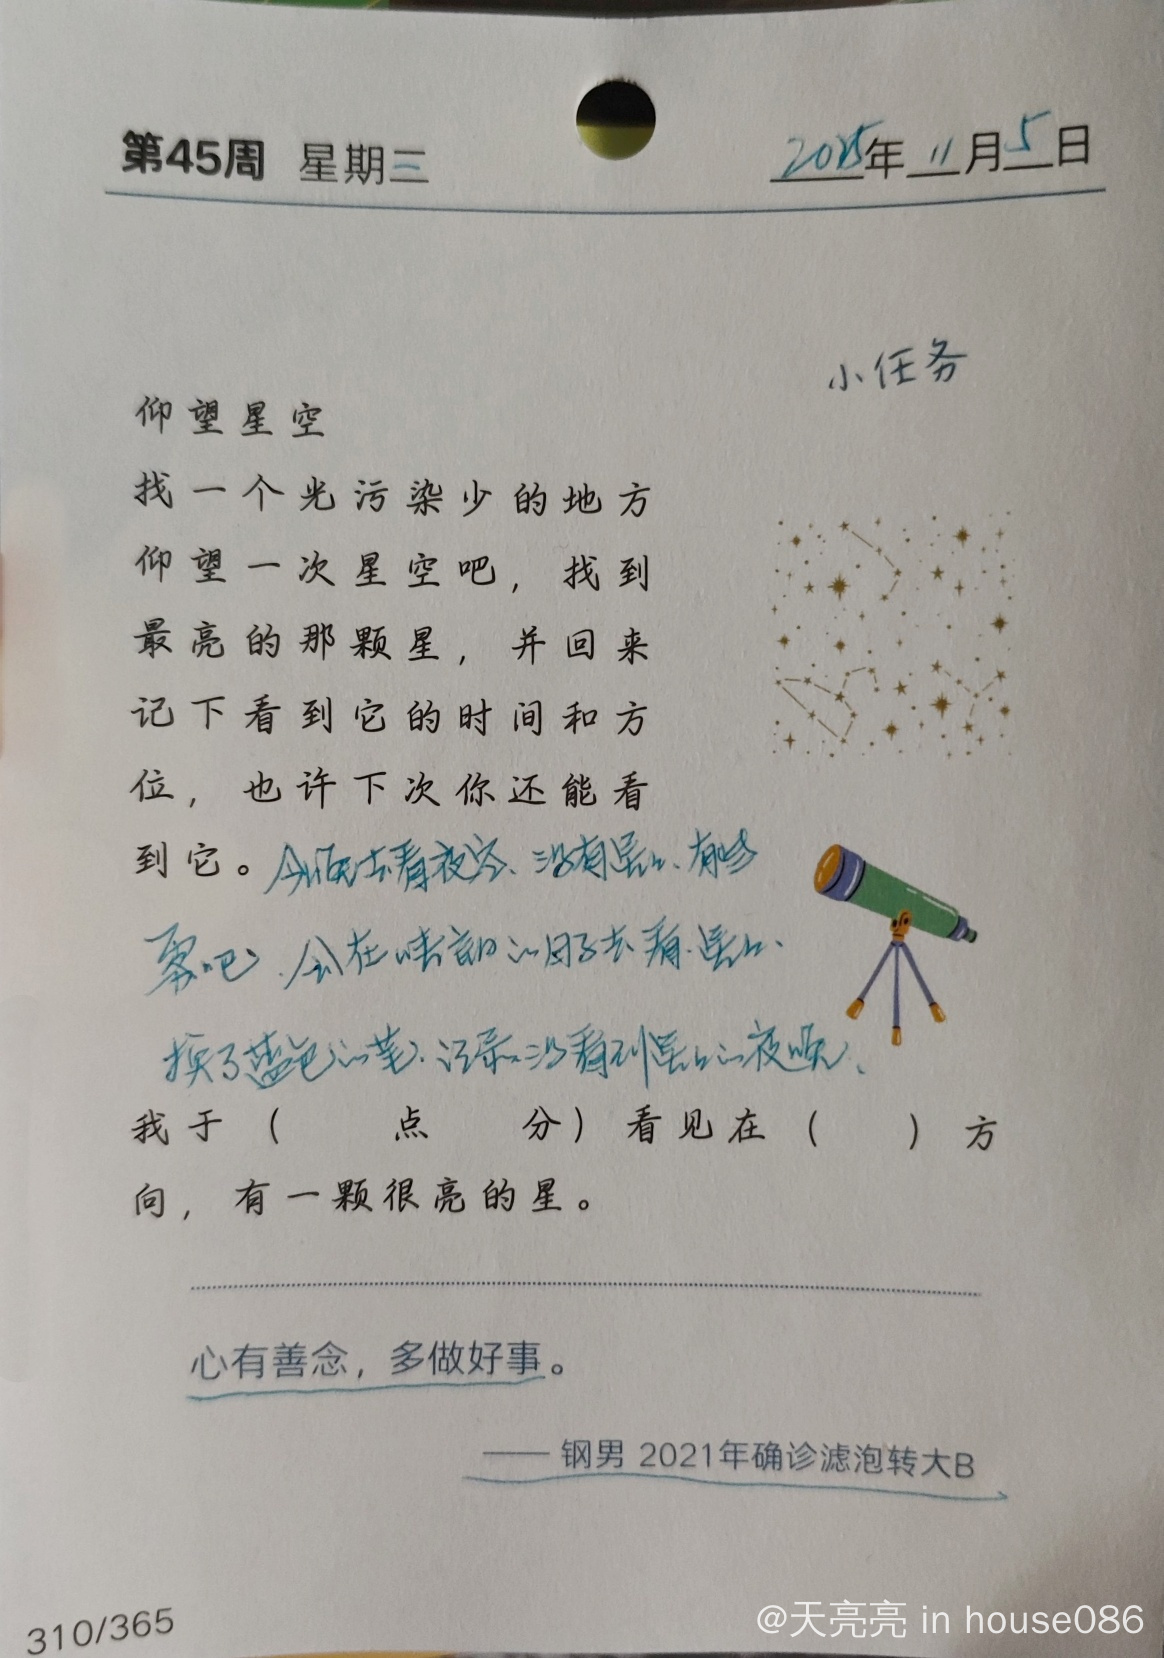 第45周 星期三 2025年11月5日
小任务
仰望星空
找一个光污染少的地方
仰望一次星空吧，找到
最亮的那颗星，并回来
记下看到它的时间和方
位，也许下次你还能看
到它。今晚去看夜空、没有星星、有些
雾吧、会在晴朗的日子去看星星、
换了蓝色的笔、记录没看到星星的夜晚、
我于（ 点 分）看见在（ ）方
向，有一颗很亮的星。
心有善念，多做好事。
—— 钢男 2021年确诊滤泡转大B
310/365
@天亮亮 in house086